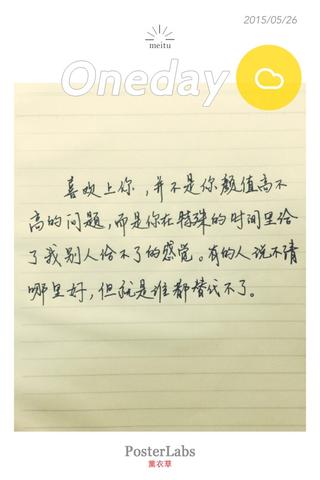 2015/05/26
meitu
Oneday
喜欢上你，并不是你颜值高不
高的问题，而是你在特殊的时间里给
了我别人给不了的感觉。有的人说不清
哪里好，但就是谁都替代不了。
PosterLabs
薰衣草